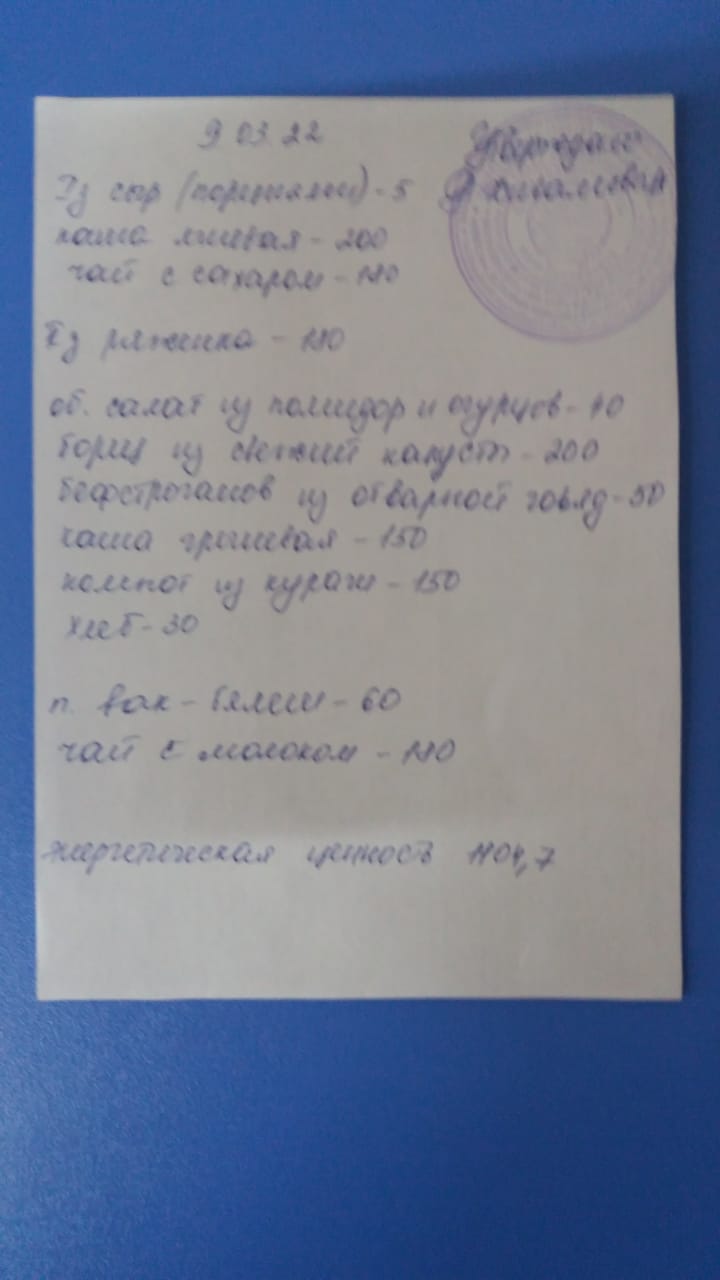 9 03 22
Iз сыр (порциями) - 5
каша пшенная - 200
чай с сахаром - 180
IIз ряженка - 180
об. салат из помидор и огурцов - 40
борщ из свежий капусты - 200
бефстроганов из отварной говяд - 50
каша гречневая - 150
компот из кураги - 150
хлеб - 30
п. вак - бялеш - 60
чай с молоком - 180
энергетическая ценность 1104,7